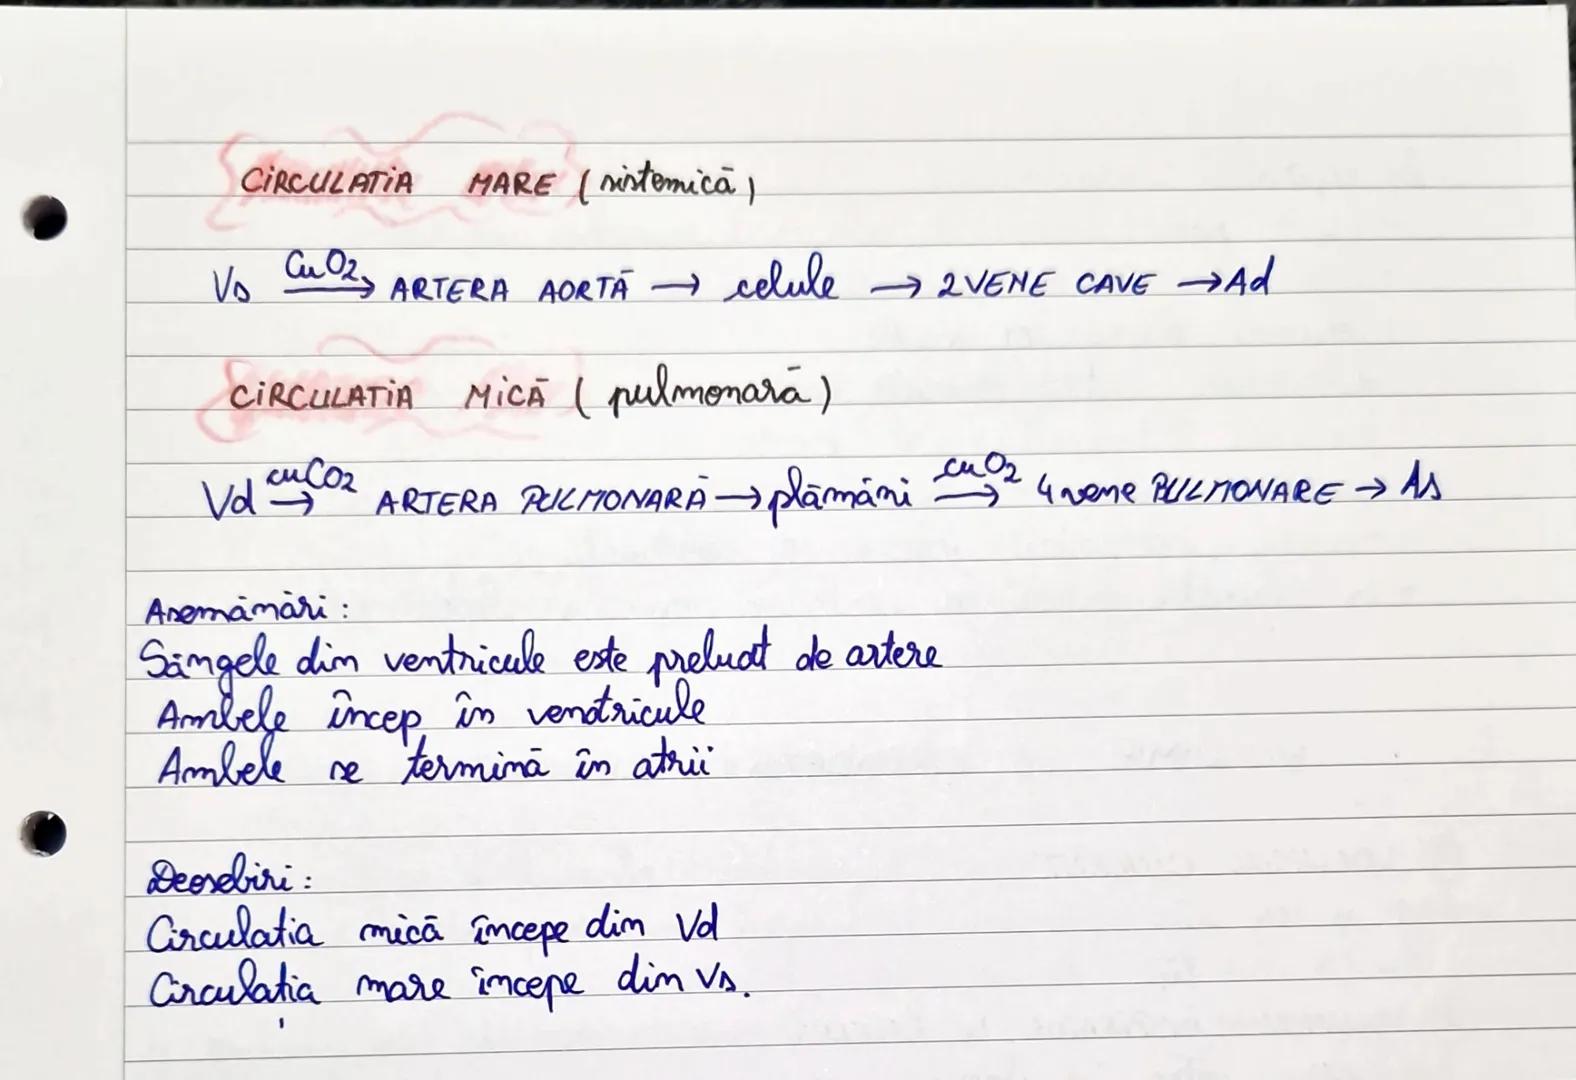 CIRCULATIA MARE (sistemică)
Vs cu O2 → ARTERA AORTĂ → celule → 2 VENE CAVE → Ad
CIRCULATIA MICĂ (pulmonară)
Vd cu CO2 → ARTERA PULMONARĂ → plămâni cu O2 → 4 vene PULMONARE → As
Asemănări:
Sângele din ventricule este preluat de artere
Ambele încep în venotricule
Ambele se termină în atrii
Deosebiri:
Circulatia mică începe din Vd
Circulația mare începe din Vs.